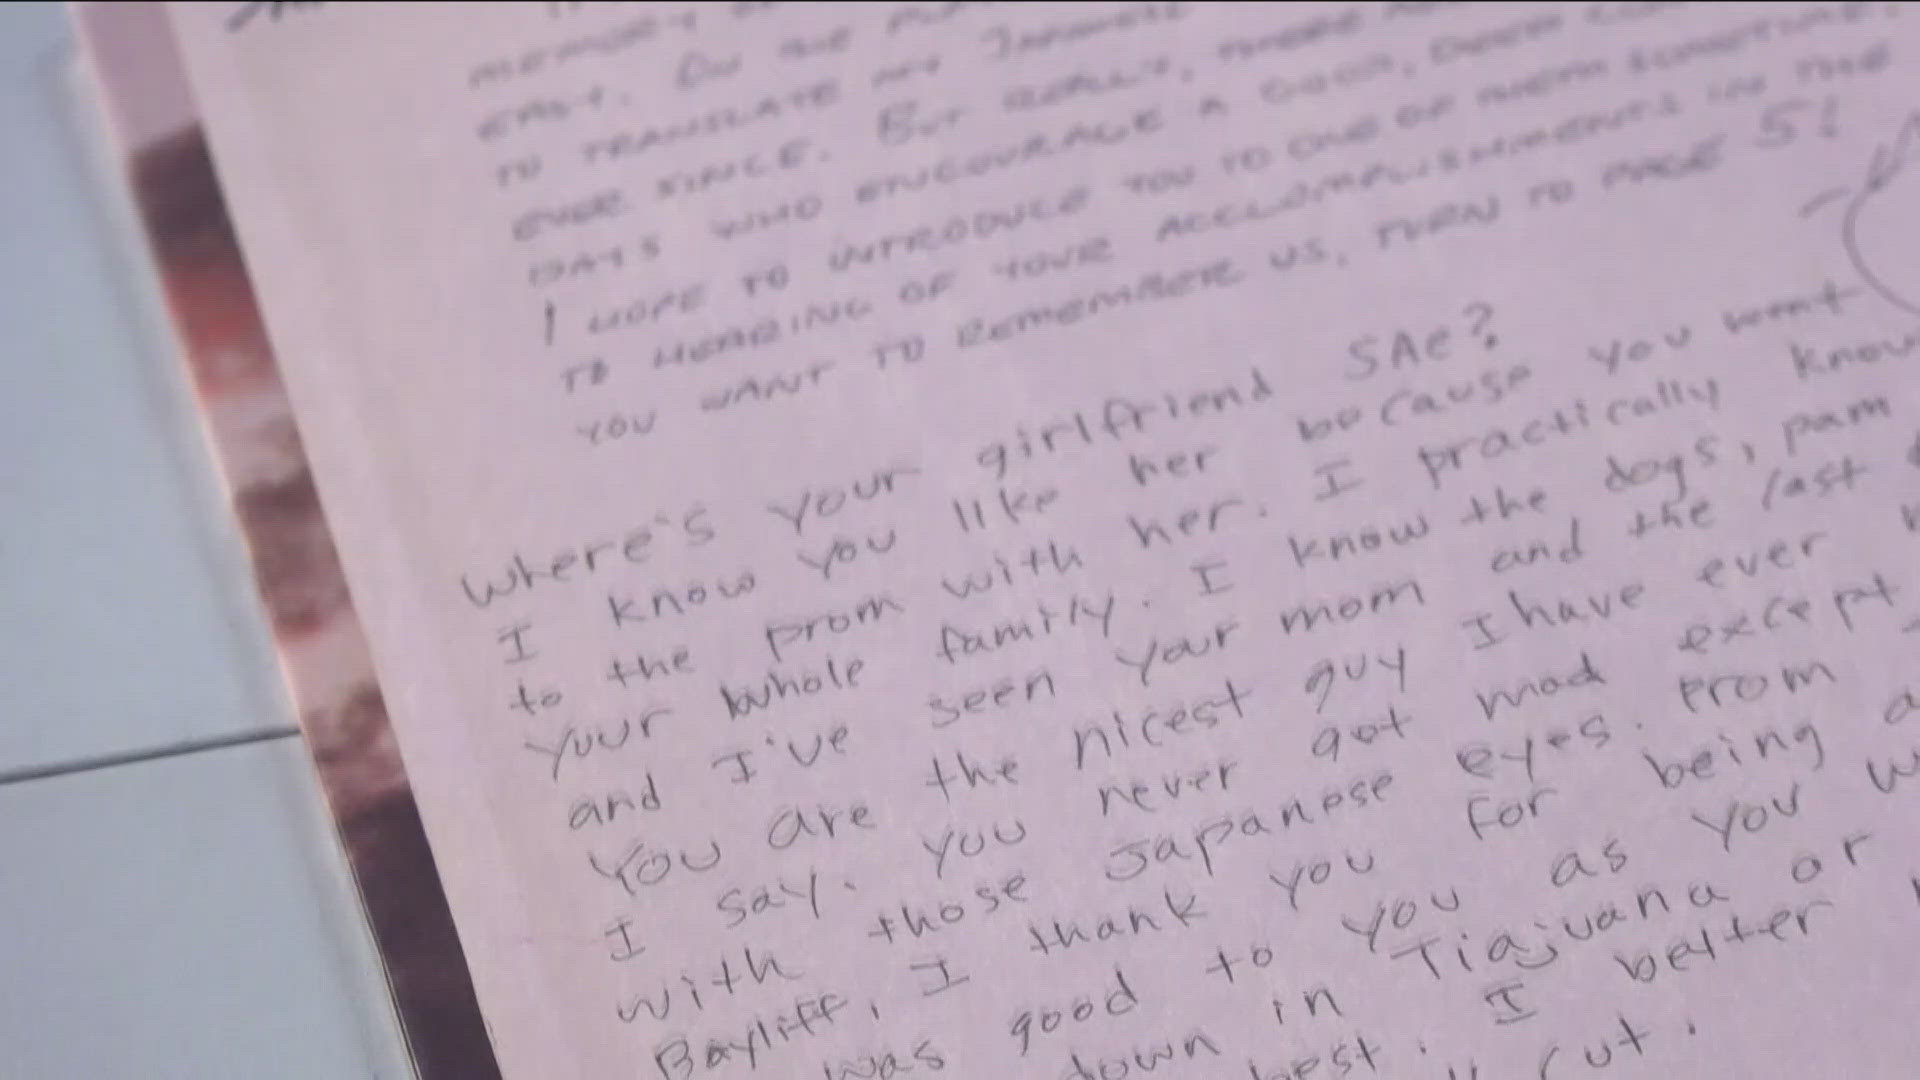 MEMORY
EAST. ON THE
TO TRANSLATE MY JAPANESE
EVER SINCE. BUT REALLY, THERE
DAYS WHO ENCOURAGE A GOOD, DOWN
I HOPE TO INTRODUCE YOU TO ONE OF THEM SOMETIME.
TO HEARING OF YOUR ACCLOMPLISHMENTS IN THE
YOU WANT TO REMEMBER US, TURN TO PAGE 5!
Where's your girlfriend SAE?
I know you like her because you went
to the prom with her. I practically know
your whole family. I know the dogs, pam
and I've seen your mom and the last
You are the nicest guy I have ever
I say. you never got mad except
with those Japanese eyes. From
Bayliff, I thank you for being a
was good to you as you
down in Tiajuana or
best. I better
cut.